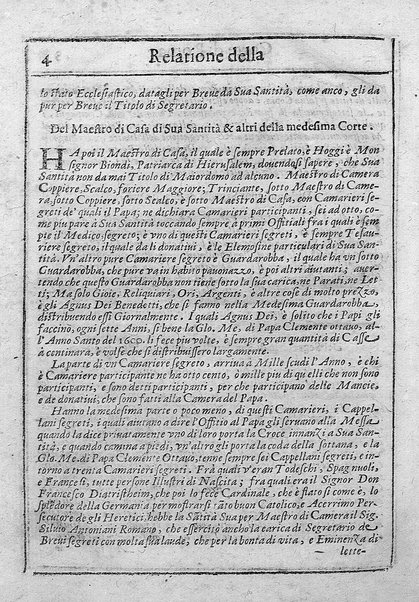 4
Relatione della
lo stato Ecclesiastico, datagli per Breve da Sua Santità, come anco, gli da
pur per Breve il Titolo di Segretario.
Del Maestro di Casa di Sua Santità & altri della medesima Corte.
HA poi il Maestro di Casa, il quale è sempre Prelato, è Hoggi è Mon
signor Biondi, Patriarca di Hierusalem, dovendosi sapere, che Sua
Santità non da mai Titolo di Maiordomo ad alcuno. Maestro di Camera
Coppiere, Scalco, foriere Maggiore; Trinciante, sotto Maestro di Came-
ra, sotto Coppiere, sotto Scalco, è sotto Maestro di Casa, con Camarieri se-
greti de' quali il Papa; ne dichiara Camarieri participanti, sei ad otto, co-
me piu pare à Sua Santità toccando sempre à primi Offitiali fra i quali è sem
pre il Medico segreto; è vno di questi Camarieri segreti, è sempre Tesau-
riere segreto, il quale da li donatiui, è le Elemosine particulari di Sua San-
tità. Vn'altro pure Cameriere segreto è Guardarobba, il quale ha vn sotto
Guardarobba, che pure và in habito pauonazzo, è poi altri aiutanti; auer-
tendo che questo Guardarobba non tiene sotto la sua carica, ne Parati, ne Let
ti; Ma solo Gioie, Reliquiari, Ori, Argenti, è altre cose di molto prezzo,
è gli Agnus Dei Benedetti, che si fanno nella Medesima Guardarobba
distribuendo essi Giornalmente. I quali Agnus Dei, è solito che i Papi gli
faccino, ogni sette Anni, si bene la Glo. Me. di Papa Clemente ottauo, al-
l'Anno Santo del 1600. li fece piu volte, è sempre gran quantità di Casse
à centinara, è volse che si distribuissero largamente.
La parte di vn Camariere segreto, arriua à Mille scudi l'Anno, è chi
è Camariere participante ne ha otto cento, ò mille piu di quelli che non sono
participanti, è sono detti participanti, per che participano delle Mancie,
e de donatiui, che sono fatti alla Camera del Papa.
Hanno la medesima parte o poco meno, di questi Camarieri, i Cappel-
lani segreti, i quali aiutano a dire l'Offitio al Papa gli seruano alla Messa
quando la dice priuatamente vno di loro porta la Croce innanzi a Sua San-
tità, e quando camina a piedi, vn'altro gli porta la coda della sottana, e la
Glo. Me. di Papa Clemente Ottauo, tenne sempre sei Cappellani segreti, e in-
torno a trenta Camarieri segreti. Frà quali v'eran Todeschi, Spagnuoli,
e Francesi, tutte persone Illustri di Nascita; fra quali era il Signor Don
Francesco Diatristheim, che poi lo fece Cardinale, che è stato si come è, lo
spledore della Germania per mostrarsi tãto buon Catolico, e Acerrimo Per-
secutore de gli Heretici, hebbe la Sãtità Sua per Maestro di Camera il Sig.
Siluio Antoniani Romano, che essercitò anche la carica di Segretario de
Breui segreti con molta sua laude; che per la bontà di vita, e Eminenza di
lette-